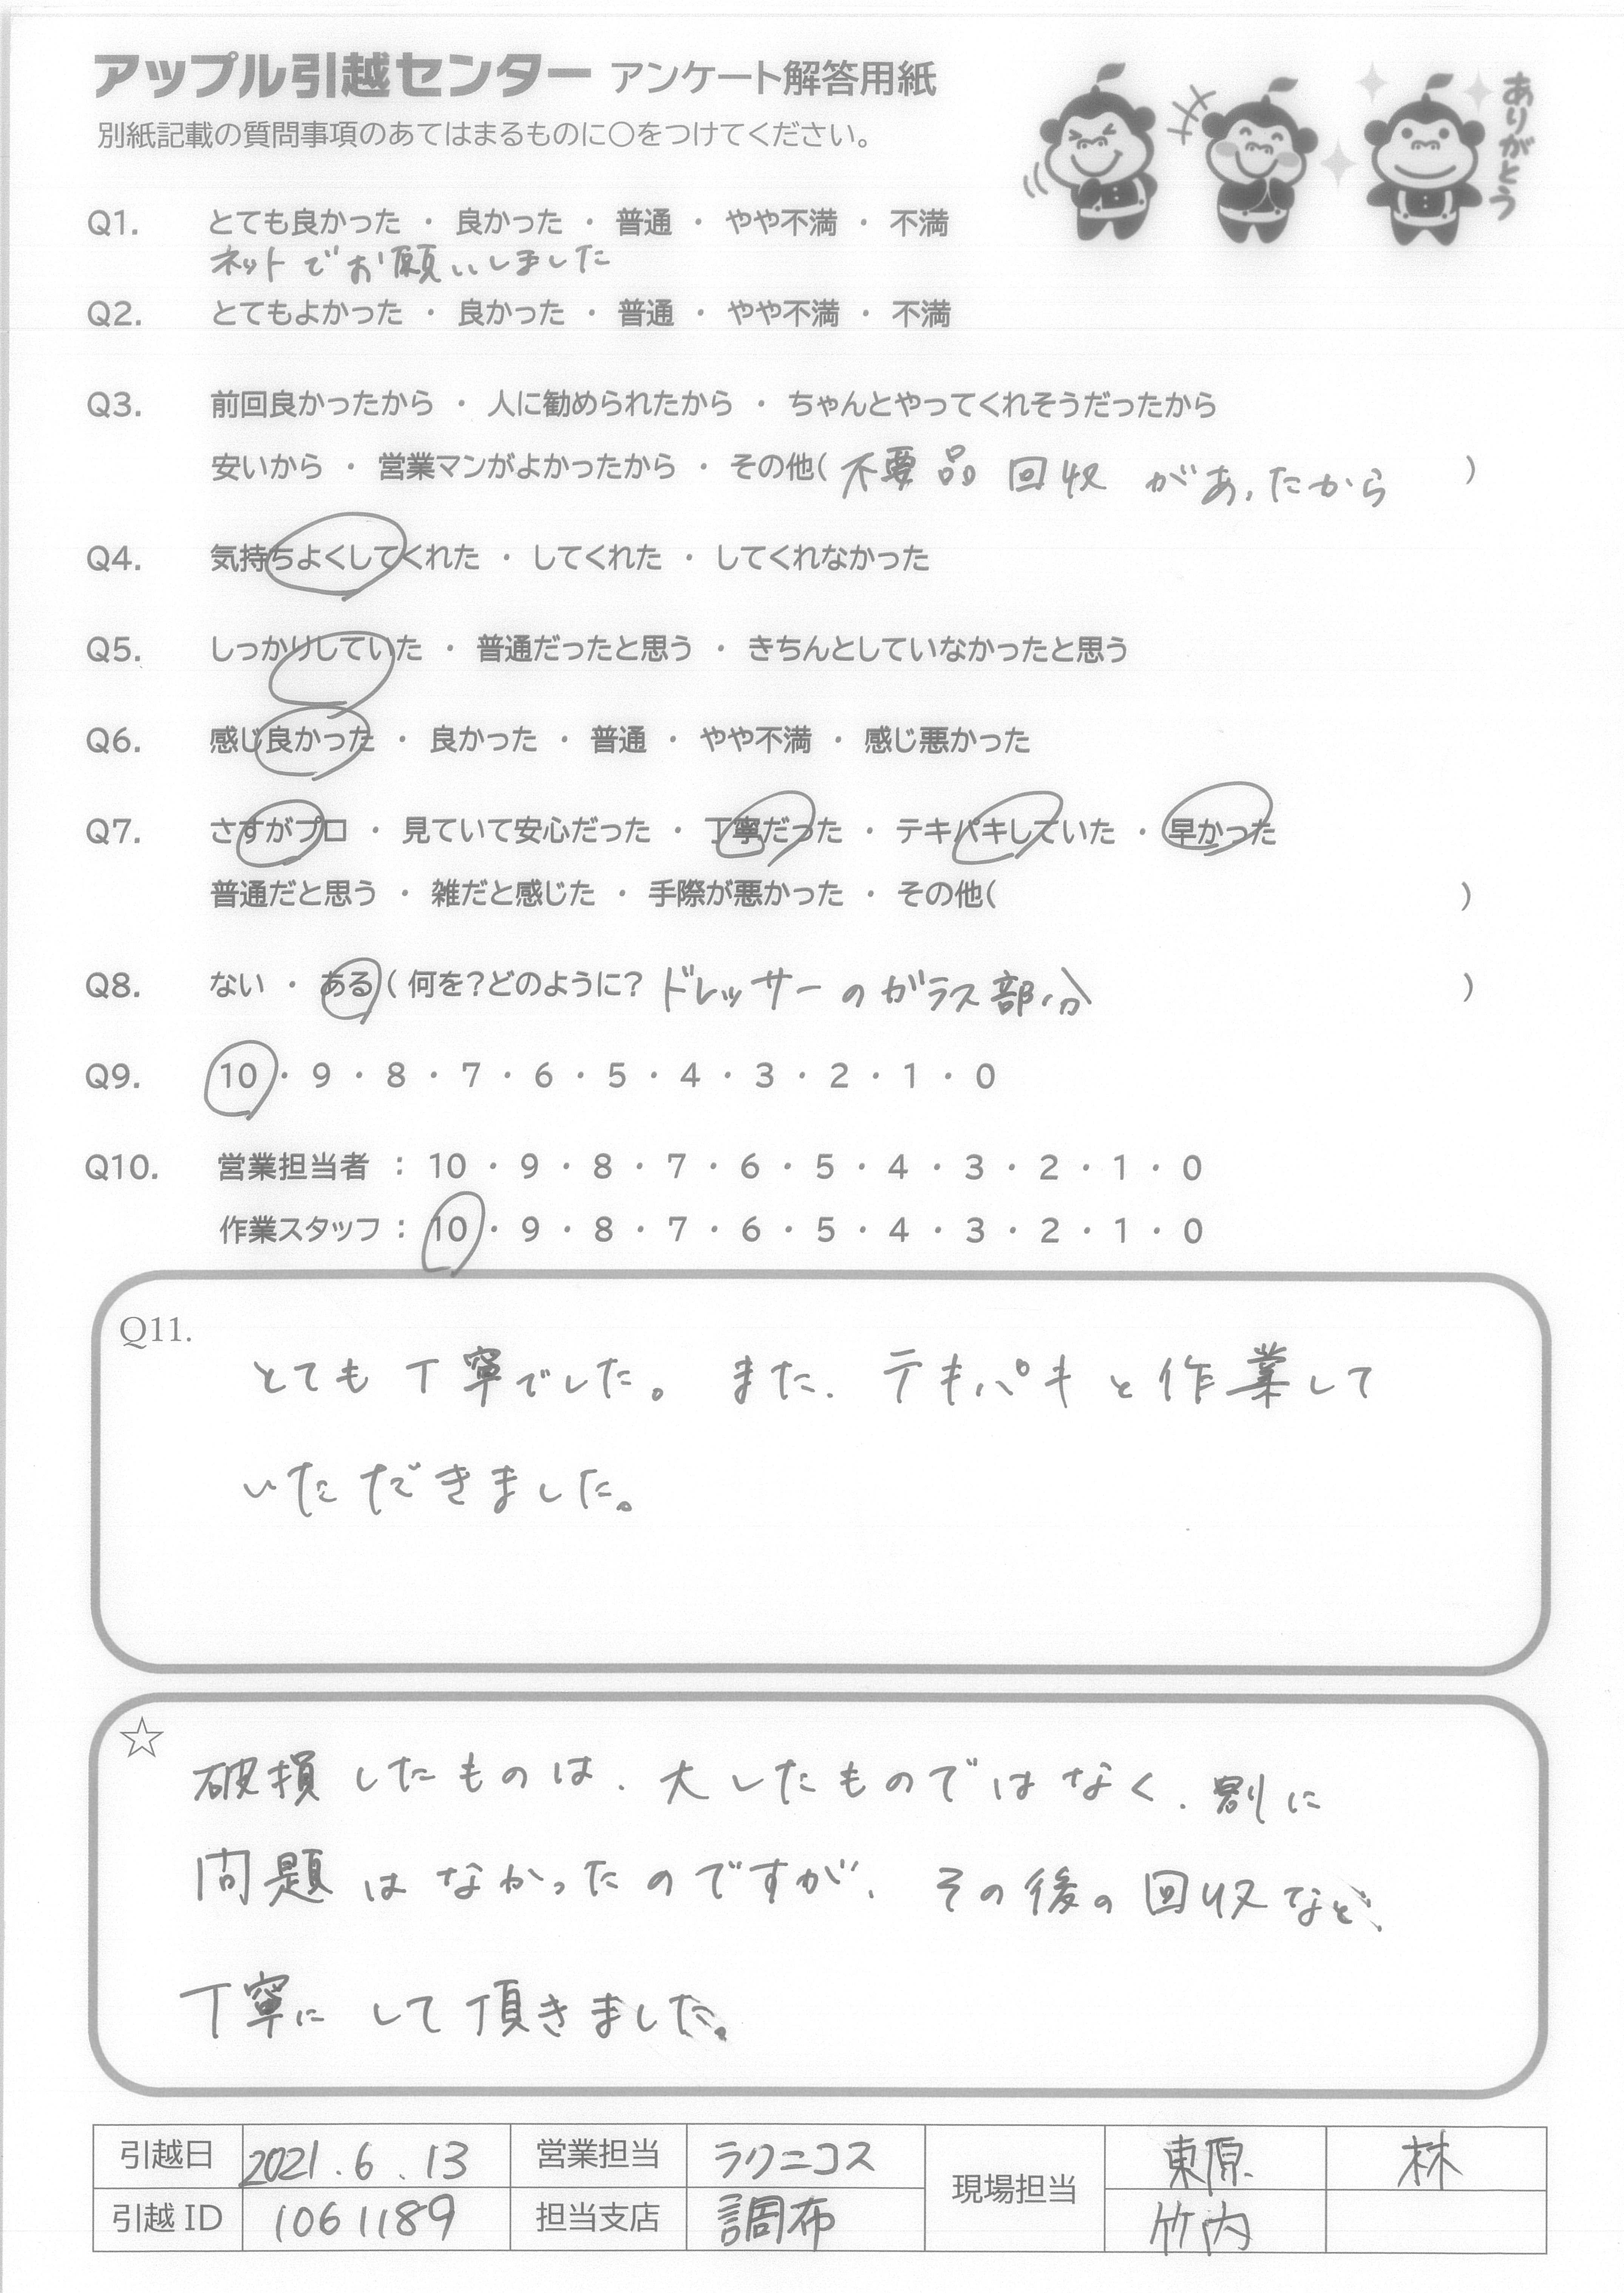 アップル引越センター アンケート解答用紙
別紙記載の質問事項のあてはまるものに○をつけてください。
ありがとう
Q1. とても良かった ・ 良かった ・ 普通 ・ やや不満 ・ 不満
ネットでお願いしました
Q2. とてもよかった ・ 良かった ・ 普通 ・ やや不満 ・ 不満
Q3. 前回良かったから ・ 人に勧められたから ・ ちゃんとやってくれそうだったから
安いから ・ 営業マンがよかったから ・ その他( 不要品 回収 があったから )
Q4. 気持ちよくしてくれた ・ してくれた ・ してくれなかった
Q5. しっかりしていた ・ 普通だったと思う ・ きちんとしていなかったと思う
Q6. 感じ良かった ・ 良かった ・ 普通 ・ やや不満 ・ 感じ悪かった
Q7. さすがプロ ・ 見ていて安心だった ・ 丁寧だった ・ テキパキしていた ・ 早かった
普通だと思う ・ 雑だと感じた ・ 手際が悪かった ・ その他( )
Q8. ない ・ ある ( 何を?どのように? ドレッサーのガラス部分 )
Q9. 10 ・ 9 ・ 8 ・ 7 ・ 6 ・ 5 ・ 4 ・ 3 ・ 2 ・ 1 ・ 0
Q10. 営業担当者 : 10 ・ 9 ・ 8 ・ 7 ・ 6 ・ 5 ・ 4 ・ 3 ・ 2 ・ 1 ・ 0
作業スタッフ : 10 ・ 9 ・ 8 ・ 7 ・ 6 ・ 5 ・ 4 ・ 3 ・ 2 ・ 1 ・ 0
Q11.
とても丁寧でした。また、テキパキと作業して
いただきました。
☆
破損したものは、大したものではなく、割に
問題はなかったのですが、その後の回収など、
丁寧にして頂きました。
引越日 2021.6.13 営業担当 ラクニコス 現場担当 東原 林
引越ID 1061189 担当支店 調布 竹内